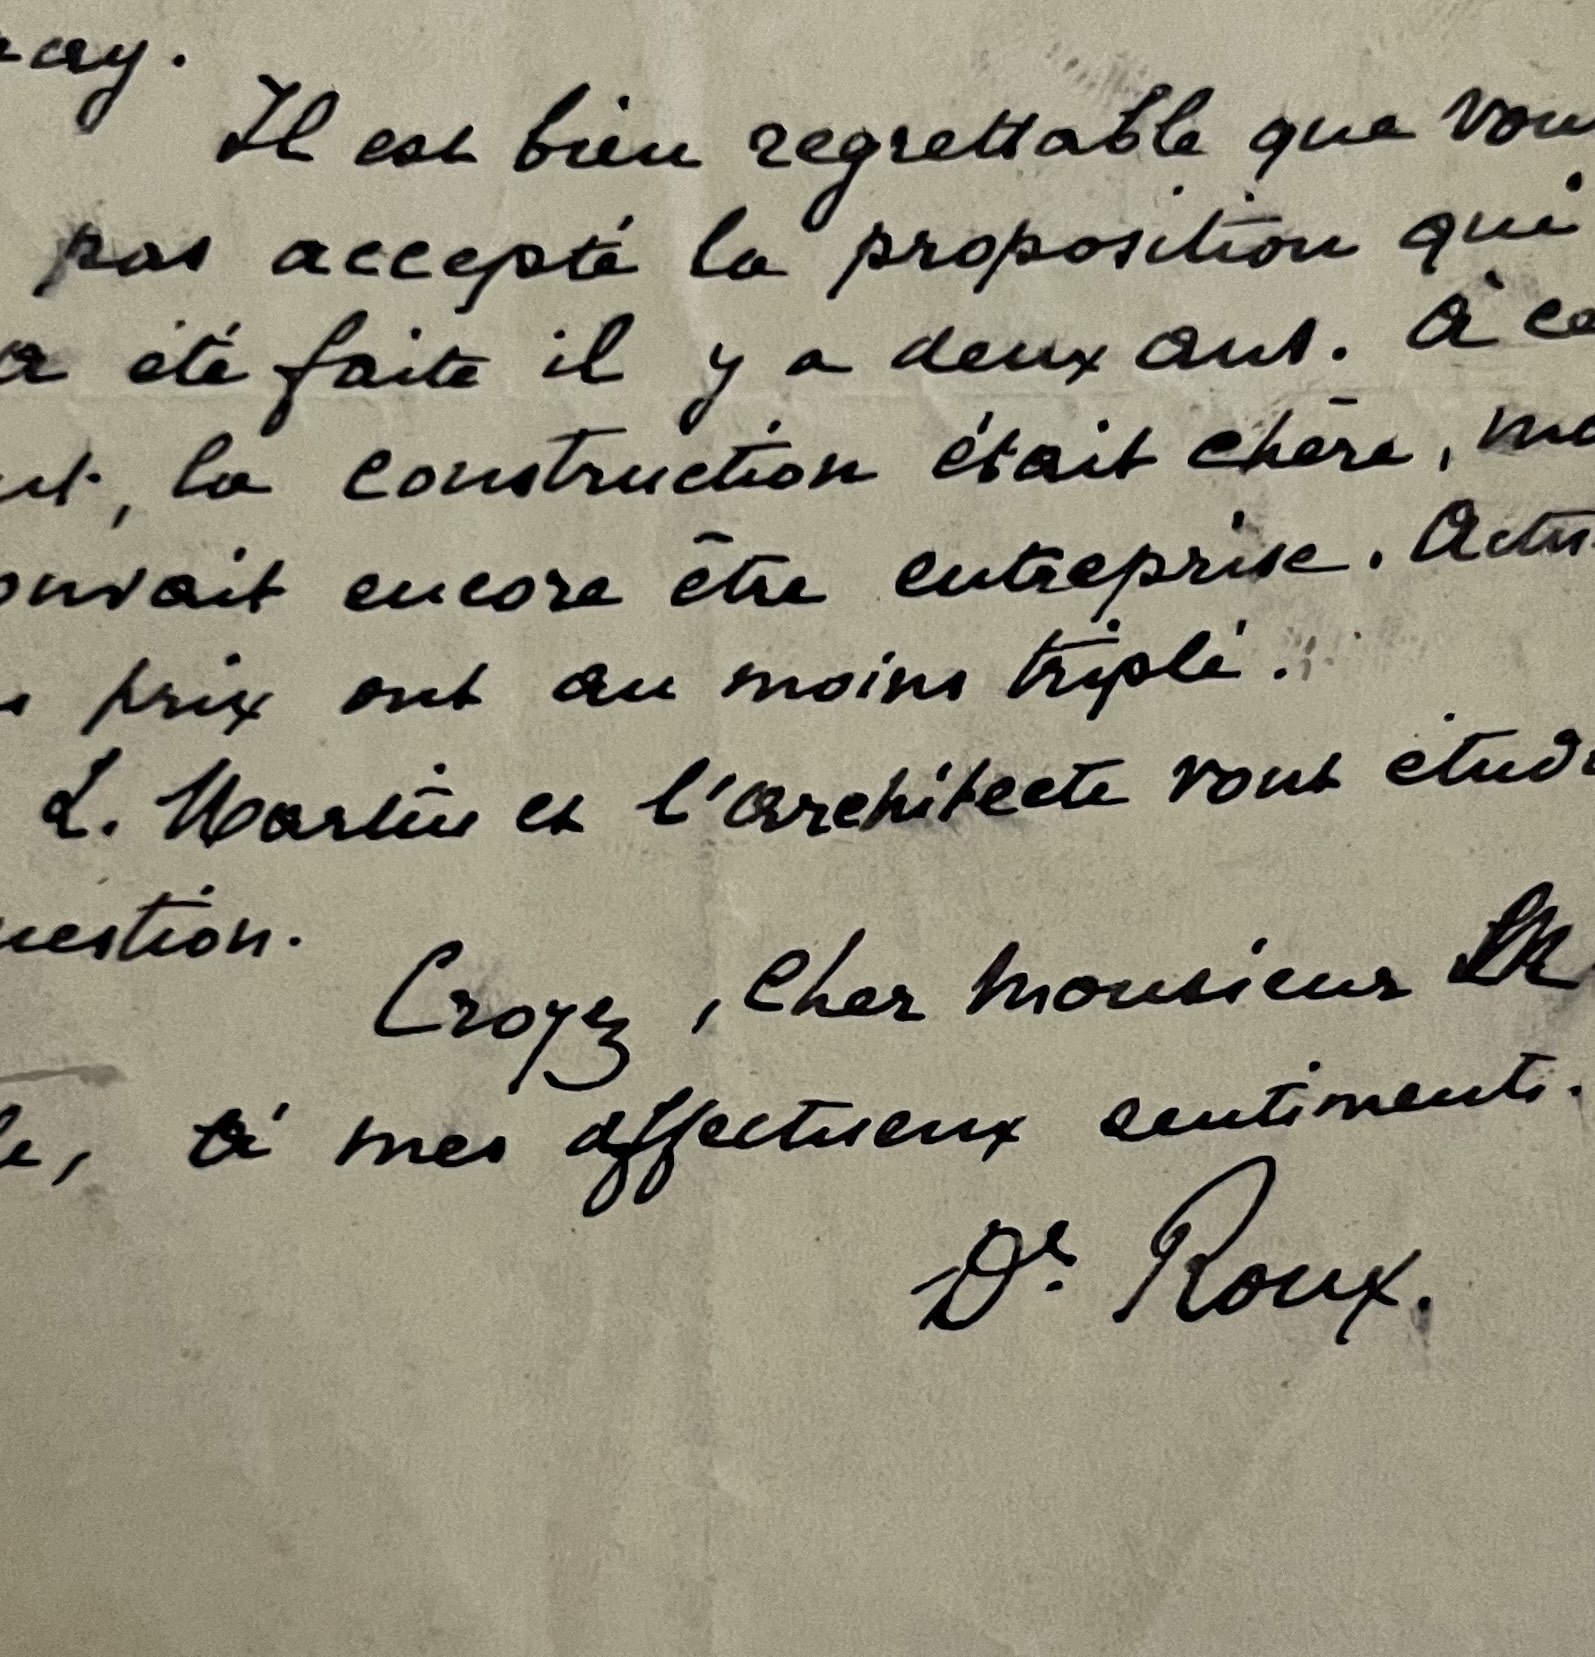 ay.
Il est bien regrettable que vou
pas accepté la proposition qui
a été faite il y a deux ans. À ce
nt, la construction était chère, ma
ouvait encore être entreprise. Actu
prix ont au moins triplé.
L. Martin et l'architecte vont étudi
uestion.
Croyez, cher Monsieur
le, à mes affectueux sentiments.
Dr. Roux.